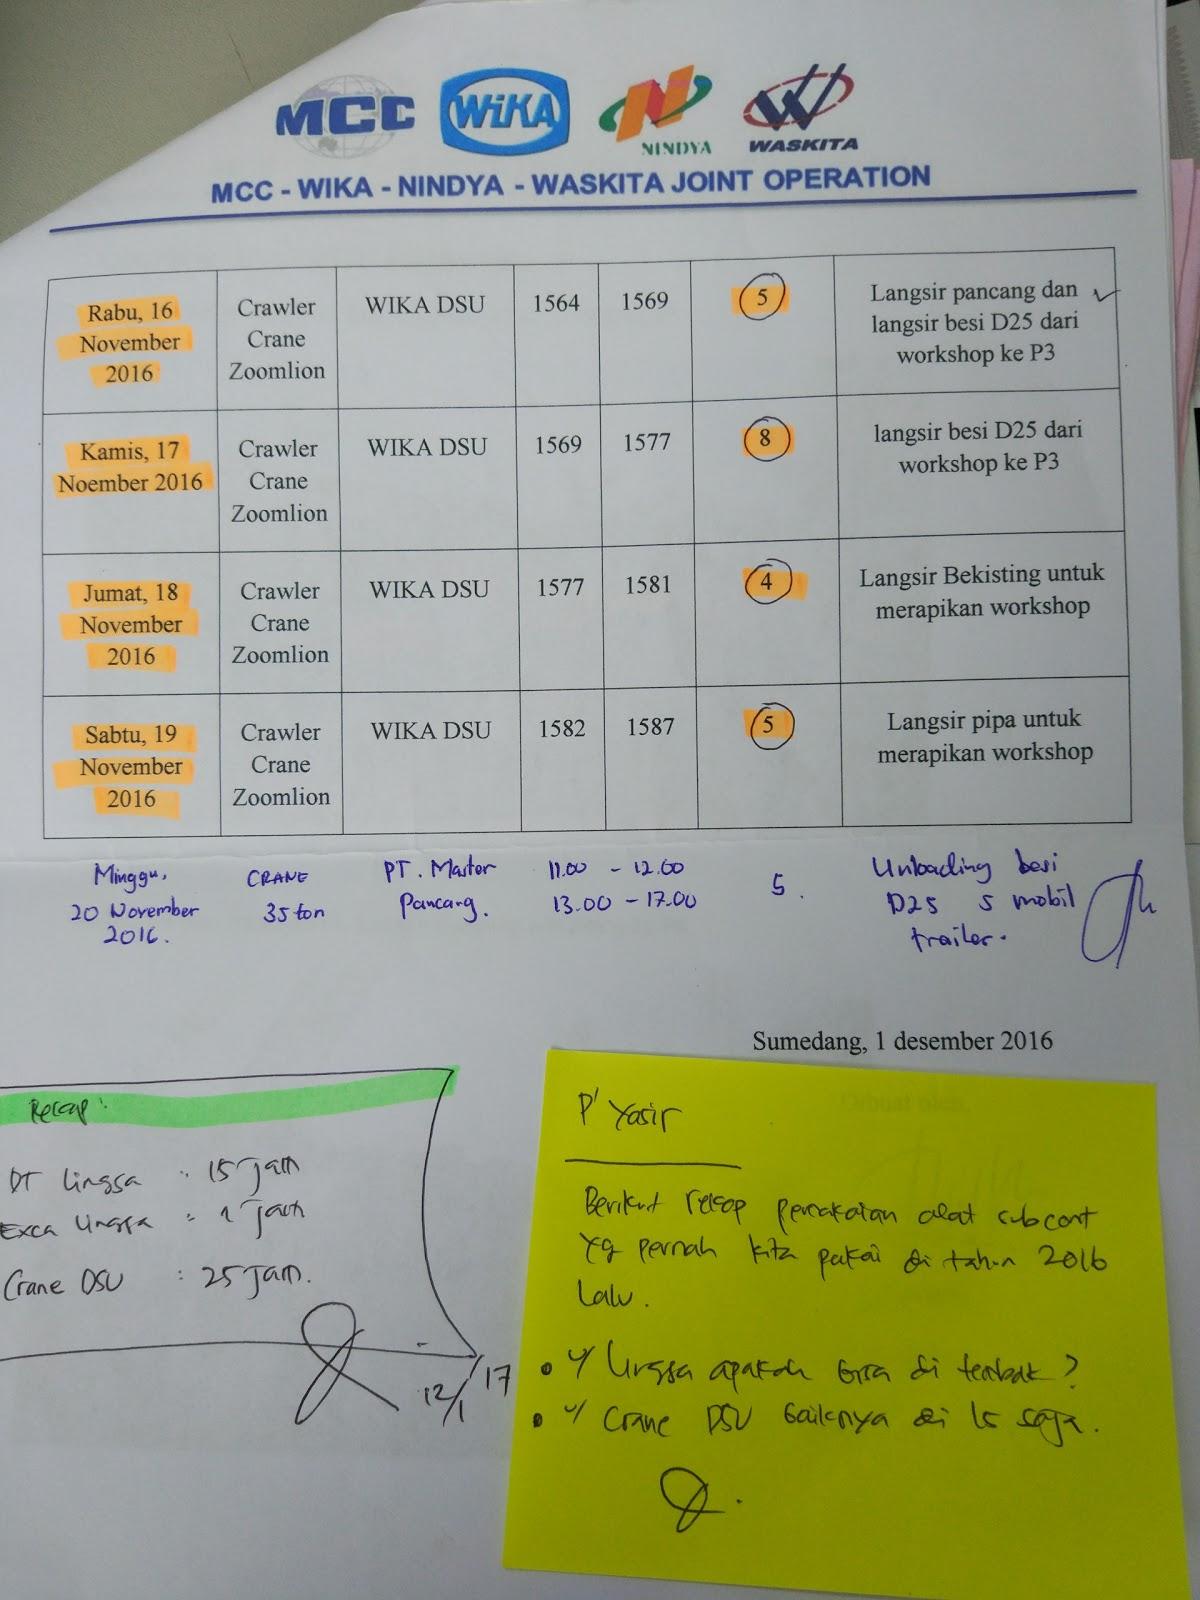 MCC
WiKA
NINDYA
WASKITA
MCC - WIKA - NINDYA - WASKITA JOINT OPERATION
Rabu, 16
November
2016
Crawler
Crane
Zoomlion
WIKA DSU
1564
1569
5
Langsir pancang dan
langsir besi D25 dari
workshop ke P3
Kamis, 17
Noember 2016
Crawler
Crane
Zoomlion
WIKA DSU
1569
1577
8
langsir besi D25 dari
workshop ke P3
Jumat, 18
November
2016
Crawler
Crane
Zoomlion
WIKA DSU
1577
1581
4
Langsir Bekisting untuk
merapikan workshop
Sabtu, 19
November
2016
Crawler
Crane
Zoomlion
WIKA DSU
1582
1587
5
Langsir pipa untuk
merapikan workshop
Minggu,
20 November
2016.
CRANE
35 ton
PT. Master
Pancang.
11.00 - 12.00
13.00 - 17.00
5.
Unloading besi
D25 5 mobil
trailer.
Sumedang, 1 desember 2016
Recap:
DT Lingga : 15 Jam
Exca Lingga : 1 Jam
Crane DSU : 25 Jam.
12/1/17
Dibuat oleh,
P' Yasir
Berikut rekap pemakaian alat subcont
yg pernah kita pakai di tahun 2016
lalu.
• u/ Lingga apakah bisa di tembak?
• u/ Crane DSU baiknya di ls saja.